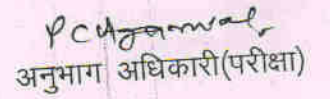 P C Agarwal
अनुभाग अधिकारी(परीक्षा)